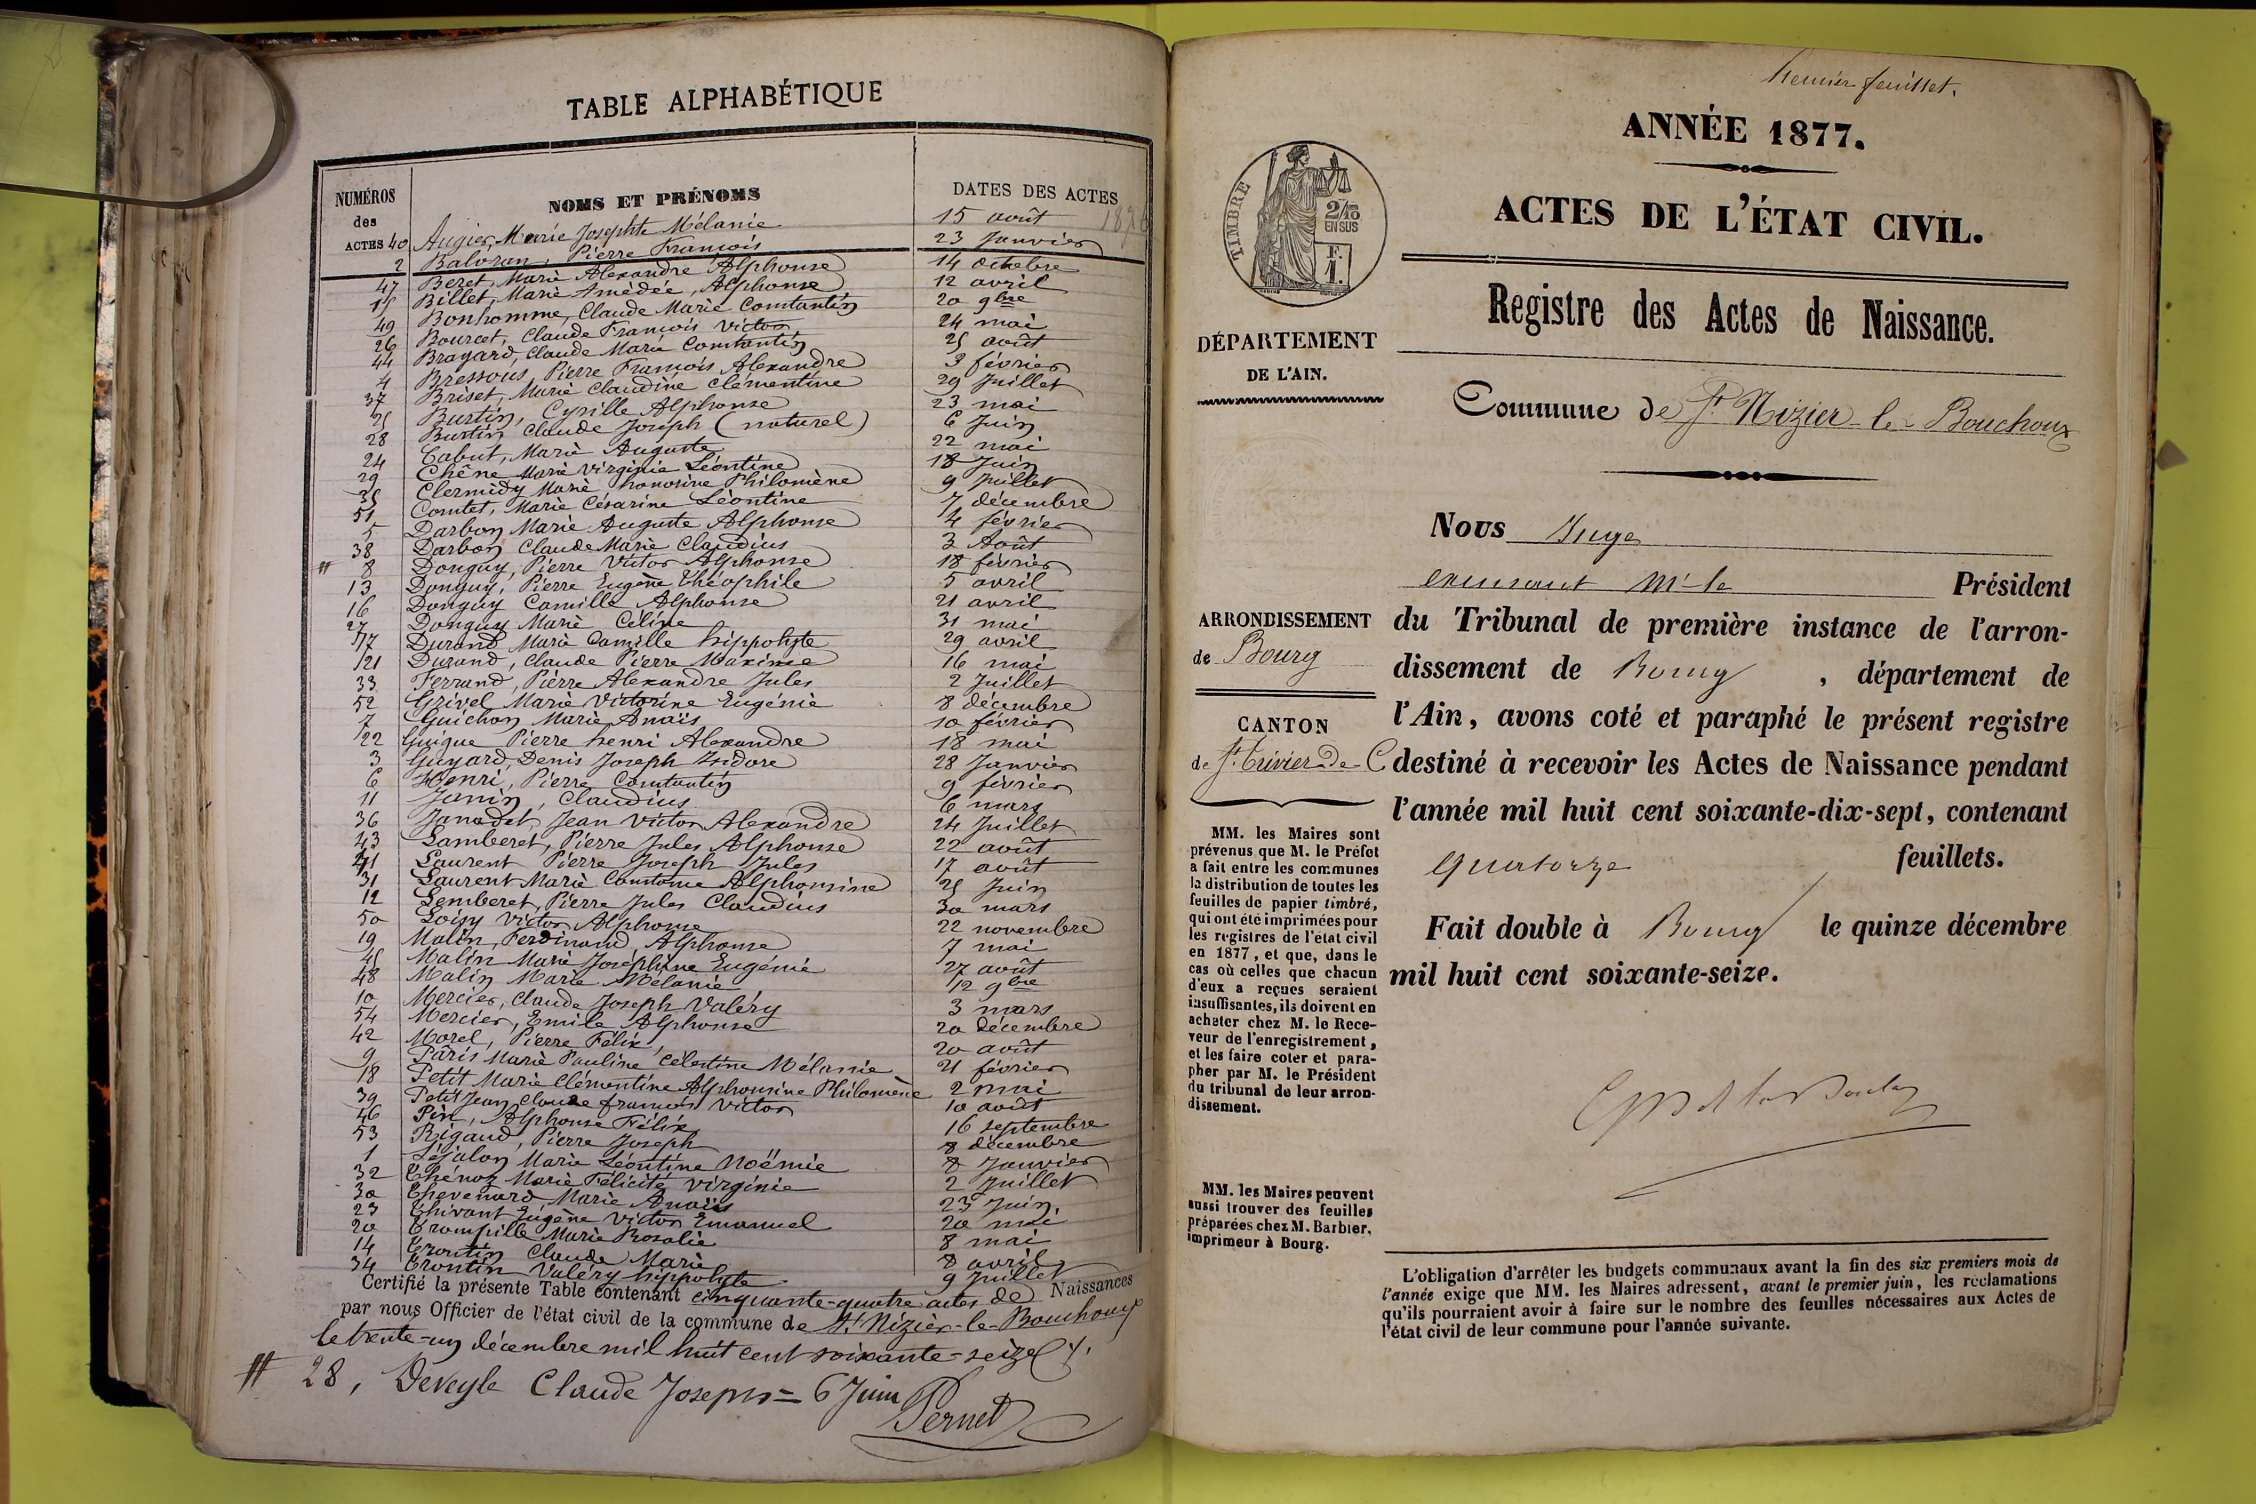 TABLE ALPHABÉTIQUE
NUMÉROS des ACTES NOMS ET PRÉNOMS DATES DES ACTES
40 Augier, Marie Josephte Mélanie 15 août 1876
2 Balvran, Pierre François 23 Janvier
47 Beret, Marie Alexandre Alphonse 14 octobre
15 Billet, Marie Amédée, Alphonse 12 avril
49 Bonhomme, Claude Marie Constantin 20 9bre
26 Bourcet, Claude François Victor 24 mai
44 Brayard, Claude Marie Constantin 25 août
4 Bressoux, Pierre François Alexandre 3 février
37 Briset, Marie Claudine Clémentine 29 Juillet
25 Burtin, Cyrille Alphonse 23 mai
28 Burtin Claude Joseph (naturel) 6 Juin
24 Cabut, Marie Auguste 22 mai
29 Chêne Marie Virginie Léontine 18 Juin
35 Clermidy Marie honorine Philomène 9 Juillet
51 Comtet, Marie Césarine Léontine 7 décembre
5 Darbon Marie Auguste Alphonse 4 février
38 Darbon Claude Marie Claudius 3 Août
# 8 Donguy, Pierre Victor Alphonse 18 février
13 Donguy, Pierre Eugène Théophile 5 avril
16 Donguy Camille Alphonse 21 avril
27 Donguy Marie Céline 31 mai
17 Durand Marie Camille hippolyte 29 avril
21 Durand, Claude Pierre Maxime 16 mai
33 Ferrand, Pierre Alexandre Jules 2 Juillet
52 Grivel Marie Victorine Eugénie 8 décembre
7 Guichon Marie Anaïs 10 février
22 Guigue Pierre henri Alexandre 18 mai
3 Guyard, Denis Joseph Isidore 28 Janvier
6 Henri, Pierre Constantin 9 février
11 Janin, Claudius 6 mars
36 Janodet, Jean Victor Alexandre 24 Juillet
43 Lamberet, Pierre Jules Alphonse 22 août
41 Laurent Pierre Joseph Jules 17 août
31 Laurent Marie Constance Alphonsine 25 Juin
12 Lemberet, Pierre Jules Claudius 30 mars
50 Loisy Victor Alphonse 22 novembre
19 Malin, Ferdinand, Alphonse 7 mai
45 Malin Marie Joséphine Eugénie 27 août
48 Malin Marie Mélanie 12 9bre
10 Mercier, Claude Joseph Valéry 3 mars
54 Mercier, Emile Alphonse 20 décembre
42 Morel, Pierre Félix 20 août
9 Pâris Marie Pauline Célestine Mélanie 21 février
18 Petit Marie Clémentine Alphonsine Philomène 2 mai
39 Petit Jean Claude françois Victor 10 août
46 Pin, Alphonse Félix 16 septembre
53 Rigaud, Pierre Joseph 8 décembre
1 Séjalon Marie Léontine Noëmie 8 Janvier
32 Thénoz Marie Félicité Virginie 2 Juillet
30 Thevenard Marie Anaïs 23 Juin
23 Thivant Eugène Victor Emanuel 20 mai
20 Trompille Marie Rosalie 8 mai
14 Trontin Claude Marie 8 avril
34 Trontin Valéry hippolyte 9 Juillet
Certifié la présente Table contenant cinquante-quatre actes de Naissances
par nous Officier de l'état civil de la commune de St Nizier-le-Bouchoux
le trente-un décembre mil huit cent soixante-seize
# 28, Deveyle Claude Joseph = 6 Juin
Pernet
Premier feuillet.
ANNÉE 1877.
ACTES DE L'ÉTAT CIVIL.
TIMBRE
2/10 EN SUS
F. 1.
Registre des Actes de Naissance.
DÉPARTEMENT
DE L'AIN.
Commune de St Nizier-le-Bouchoux
Nous Juge
Président
ARRONDISSEMENT
de Bourg
CANTON
de St Trivier-de-C
du Tribunal de première instance de l'arron-
dissement de Bourg, département de
l'Ain, avons coté et paraphé le présent registre
destiné à recevoir les Actes de Naissance pendant
l'année mil huit cent soixante-dix-sept, contenant
quatorze feuillets.
Fait double à Bourg le quinze décembre
mil huit cent soixante-seize.
MM. les Maires sont
prévenus que M. le Préfet
a fait entre les communes
la distribution de toutes les
feuilles de papier timbré,
qui ont été imprimées pour
les registres de l'état civil
en 1877, et que, dans le
cas où celles que chacun
d'eux a reçues seraient
insuffisantes, ils doivent en
acheter chez M. le Rece-
veur de l'enregistrement,
et les faire coter et para-
pher par M. le Président
du tribunal de leur arron-
dissement.
MM. les Maires peuvent
aussi trouver des feuilles
préparées chez M. Barbier,
imprimeur à Bourg.
L'obligation d'arrêter les budgets communaux avant la fin des six premiers mois de
l'année exige que MM. les Maires adressent, avant le premier juin, les réclamations
qu'ils pourraient avoir à faire sur le nombre des feuilles nécessaires aux Actes de
l'état civil de leur commune pour l'année suivante.